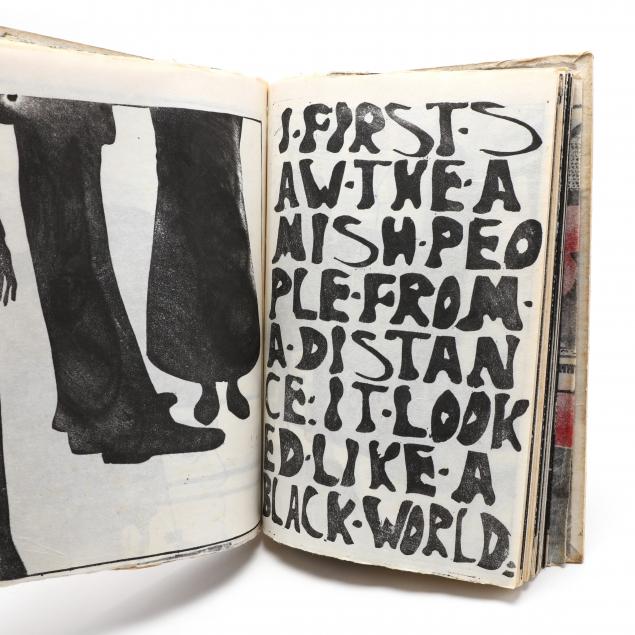 I·FIRST·S
AW·THE·A
MISH·PEO
PLE·FROM·
A·DISTAN
CE:IT·LOOK
ED·LIKE·A
BLACK·WORLD: